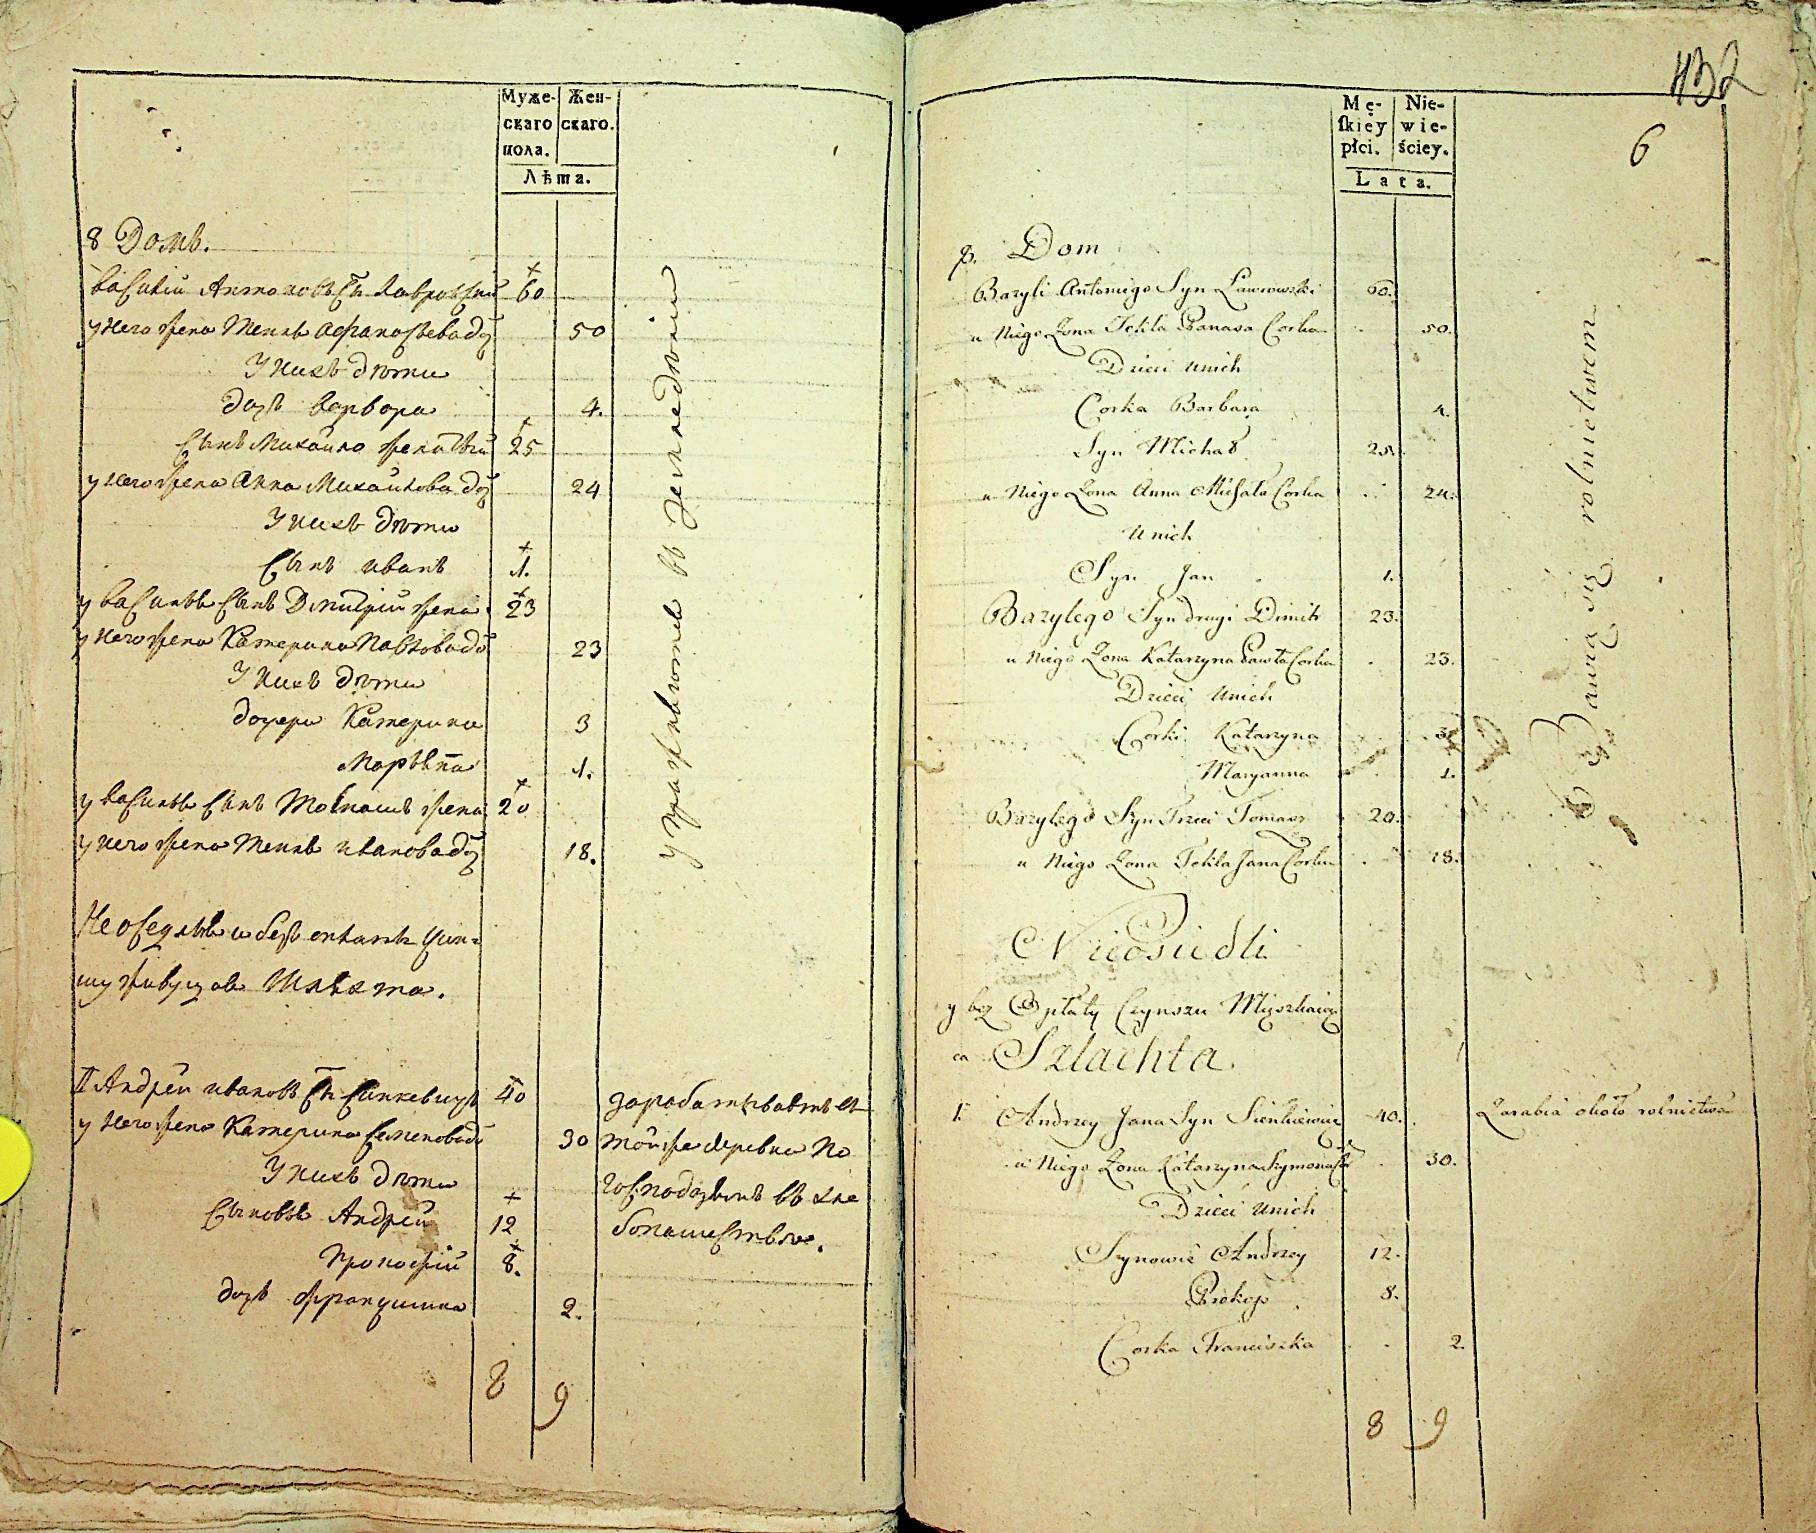 Муже-
скаго
пола.
Жен-
скаго.
Лѣта.
8 Домъ.
Василий Антоновъ Сн Лавровский 60
у него жена Текля Афанасьева доч 50
У нихъ дѣти
дочь Варвара 4.
Сынъ Михайло женатый 25
у него жена Анна Михайлова доч 24
У нихъ дѣти
Сынъ Иванъ 1.
у Василья Сынъ Дмитрий жена 23
у него жена Катерина Павлова до 23
У нихъ дѣти
дочери Катерина 3
Марьяна 1.
у Василья Сынъ Томашъ жена 20
у него жена Текля Иванова доч 18.
упражняются въ земледелии
Не оседлые и безъ оплаты чин-
шу живущие Шляхта.
1 Андрей Ивановъ Сн Синкевичъ 40
у него жена Катерина Семенова до 30
У нихъ дѣти
Сыновья Андрей 12
Прокофий 8.
дочь Францишка 2.
зарабатываетъ
той же деревни по
господамъ въ хле
бопашестве.
8 9
432
6
Mę-
skiey
płci.
Nie-
wie-
ściey.
Lata.
8. Dom
Bazyli Antoniego Syn Ławrowski 60.
u Niego Żona Tekla Panasa Corka 50.
Dzieci Unich
Corka Barbara 4.
Syn Michał 25.
u Niego Żona Anna Michała Corka 24.
Unich
Syn Jan 1.
Bazylego Syn drugi Dimitr 23.
u Niego Żona Katarzyna Pawła Corka 23.
Dzieci Unich
Corki Katarzyna 3.
Maryanna 1.
Bazylego Syn Trzeci Tomasz 20.
u Niego Żona Tekla Jana Corka 18.
Bawią się rolnictwem
Nieosiedli
y bez Opłaty Czynszu Mieszkaiąca
Szlachta
1. Andrzey Jana Syn Sienkiewicz 40. Zarabia około rolnictwa
u Niego Żona Katarzyna Symona Co 30.
Dzieci Unich
Synowie Andrzey 12.
Prokop 8.
Corka Franciszka 2.
8 9